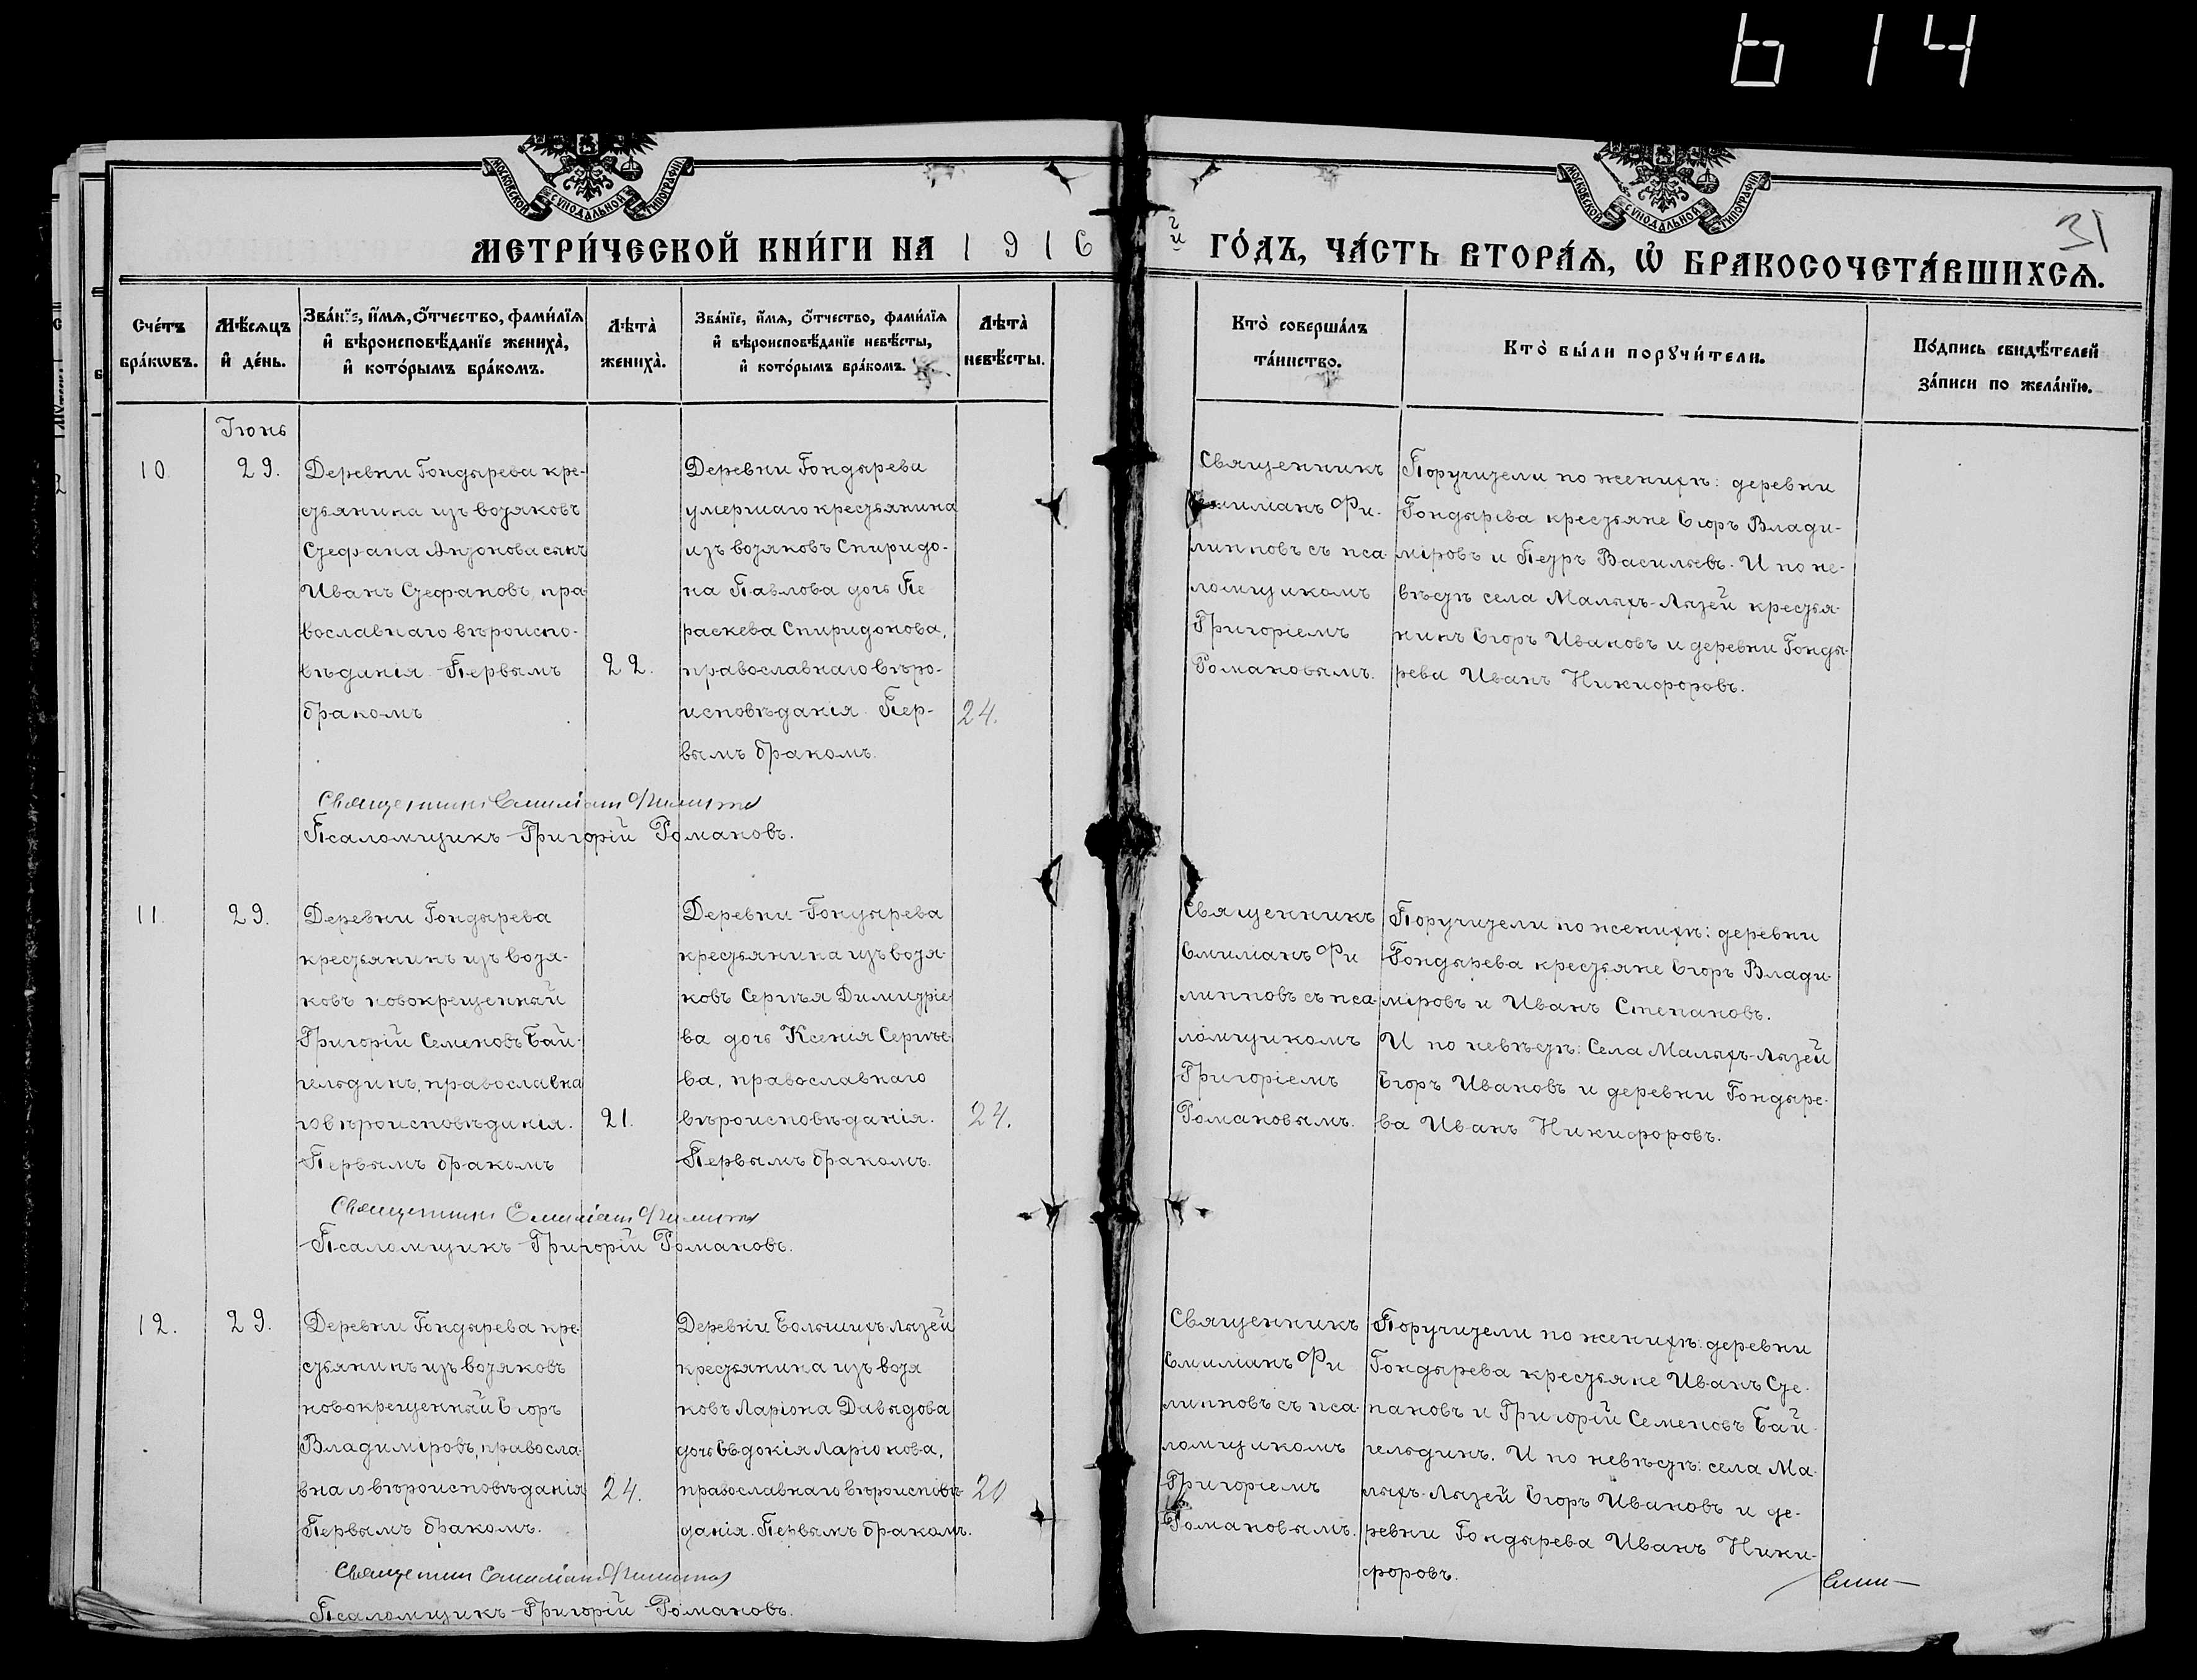 614
МОСКОВСКОЙ СѴНОДАЛЬНОЙ ТИПОГРАФІИ
МОСКОВСКОЙ СѴНОДАЛЬНОЙ ТИПОГРАФІИ
31
МЕТРИ́ЧЕСКОЙ КНИ́ГИ НА 1916
й ГО́ДЪ, ЧА́СТЬ ВТОРА́Ѧ, Ѽ БРАКОСОЧЕТА́ВШИХСѦ.
Сче́тъ бра́кѡвъ.
Мѣ́сѧцъ и҆ де́нь.
Зва́нїе, и҆́мѧ, ѻ҆́тчество, фами́лїѧ и҆ вѣроисповѣ́данїе жениха̀, и҆ кото́рымъ бра́комъ.
Лѣта̀ жениха̀.
Зва́нїе, и҆́мѧ, ѻ҆́тчество, фами́лїѧ и҆ вѣроисповѣ́данїе невѣ́сты, и҆ кото́рымъ бра́комъ.
Лѣта̀ невѣ́сты.
Кто̀ соверша́лъ та́инство.
Кто̀ бы́ли порꙋчи́тели.
По́дпись свидѣ́телей за́писи по жела́нїю.
Іюнь
10.
29.
Деревни Гондырева кре-
стьянина изъ вотяковъ
Стефана Антонова сынъ
Иванъ Стефановъ, пра
вославнаго вѣроиспо-
вѣданія. Первымъ
бракомъ
22.
Деревни Гондырева
умершаго крестьянина
изъ вотяковъ Спиридо-
на Павлова дочь Пе
раскева Спиридонова,
православнаго вѣро-
исповѣданія. Пер-
вымъ бракомъ.
24.
Священникъ
Емиліанъ Фи-
липповъ съ пса-
ломщикомъ
Григоріемъ
Романовымъ.
Поручители по женихѣ: деревни
Гондырева крестьяне Егоръ Влади-
міровъ и Петръ Васильевъ. И по не-
вѣстѣ села Малыхъ-Лызей крестья-
нинъ Егоръ Ивановъ и деревни Гонды-
рева Иванъ Никифоровъ.
Священникъ Емиліанъ Филипповъ
Псаломщикъ Григорій Романовъ.
11.
29.
Деревни Гондырева
крестьянинъ изъ вотя-
ковъ новокрещенный
Григорій Семеновъ Бай-
гельдинъ, православна
го вѣроисповѣданія.
Первымъ бракомъ
21.
Деревни Гондырева
крестьянина изъ вотя-
ковъ Сергѣя Димитріе-
ва дочь Ксенія Сергѣе-
ва, православнаго
вѣроисповѣданія.
Первымъ бракомъ.
24.
Священникъ
Емиліанъ Фи
липповъ съ пса-
ломщикомъ
Григоріемъ
Романовымъ.
Поручители по женихѣ: деревни
Гондырева крестьяне Егоръ Влади-
міровъ и Иванъ Степановъ.
И по невѣстѣ: Села Малыхъ-Лызей
Егоръ Ивановъ и деревни Гондыре-
ва Иванъ Никифоровъ.
Священникъ Емиліанъ Филипповъ
Псаломщикъ Григорій Романовъ.
12.
29.
Деревни Гондырева кре-
стьянинъ изъ вотяковъ
новокрещенный Егоръ
Владиміровъ, правосла-
внаго вѣроисповѣданія
Первымъ бракомъ.
24.
Деревни Большихъ Лызей
крестьянина изъ вотя
ковъ Ларіона Давыдова
дочь Евдокія Ларіонова,
православнаго вѣроисповѣ-
данія. Первымъ бракомъ.
20
Священникъ
Емиліанъ Фи
липповъ съ пса-
ломщикомъ
Григоріемъ
Романовымъ.
Поручители по женихѣ: деревни
Гондырева крестьяне Иванъ Сте-
пановъ и Григорій Семеновъ Бай-
гельдинъ. И по невѣстѣ: села Ма-
лыхъ-Лызей Егоръ Ивановъ и де-
ревни Гондырева Иванъ Ники-
форовъ.
Священникъ Емиліанъ Филипповъ
Псаломщикъ Григорій Романовъ.
Еми-